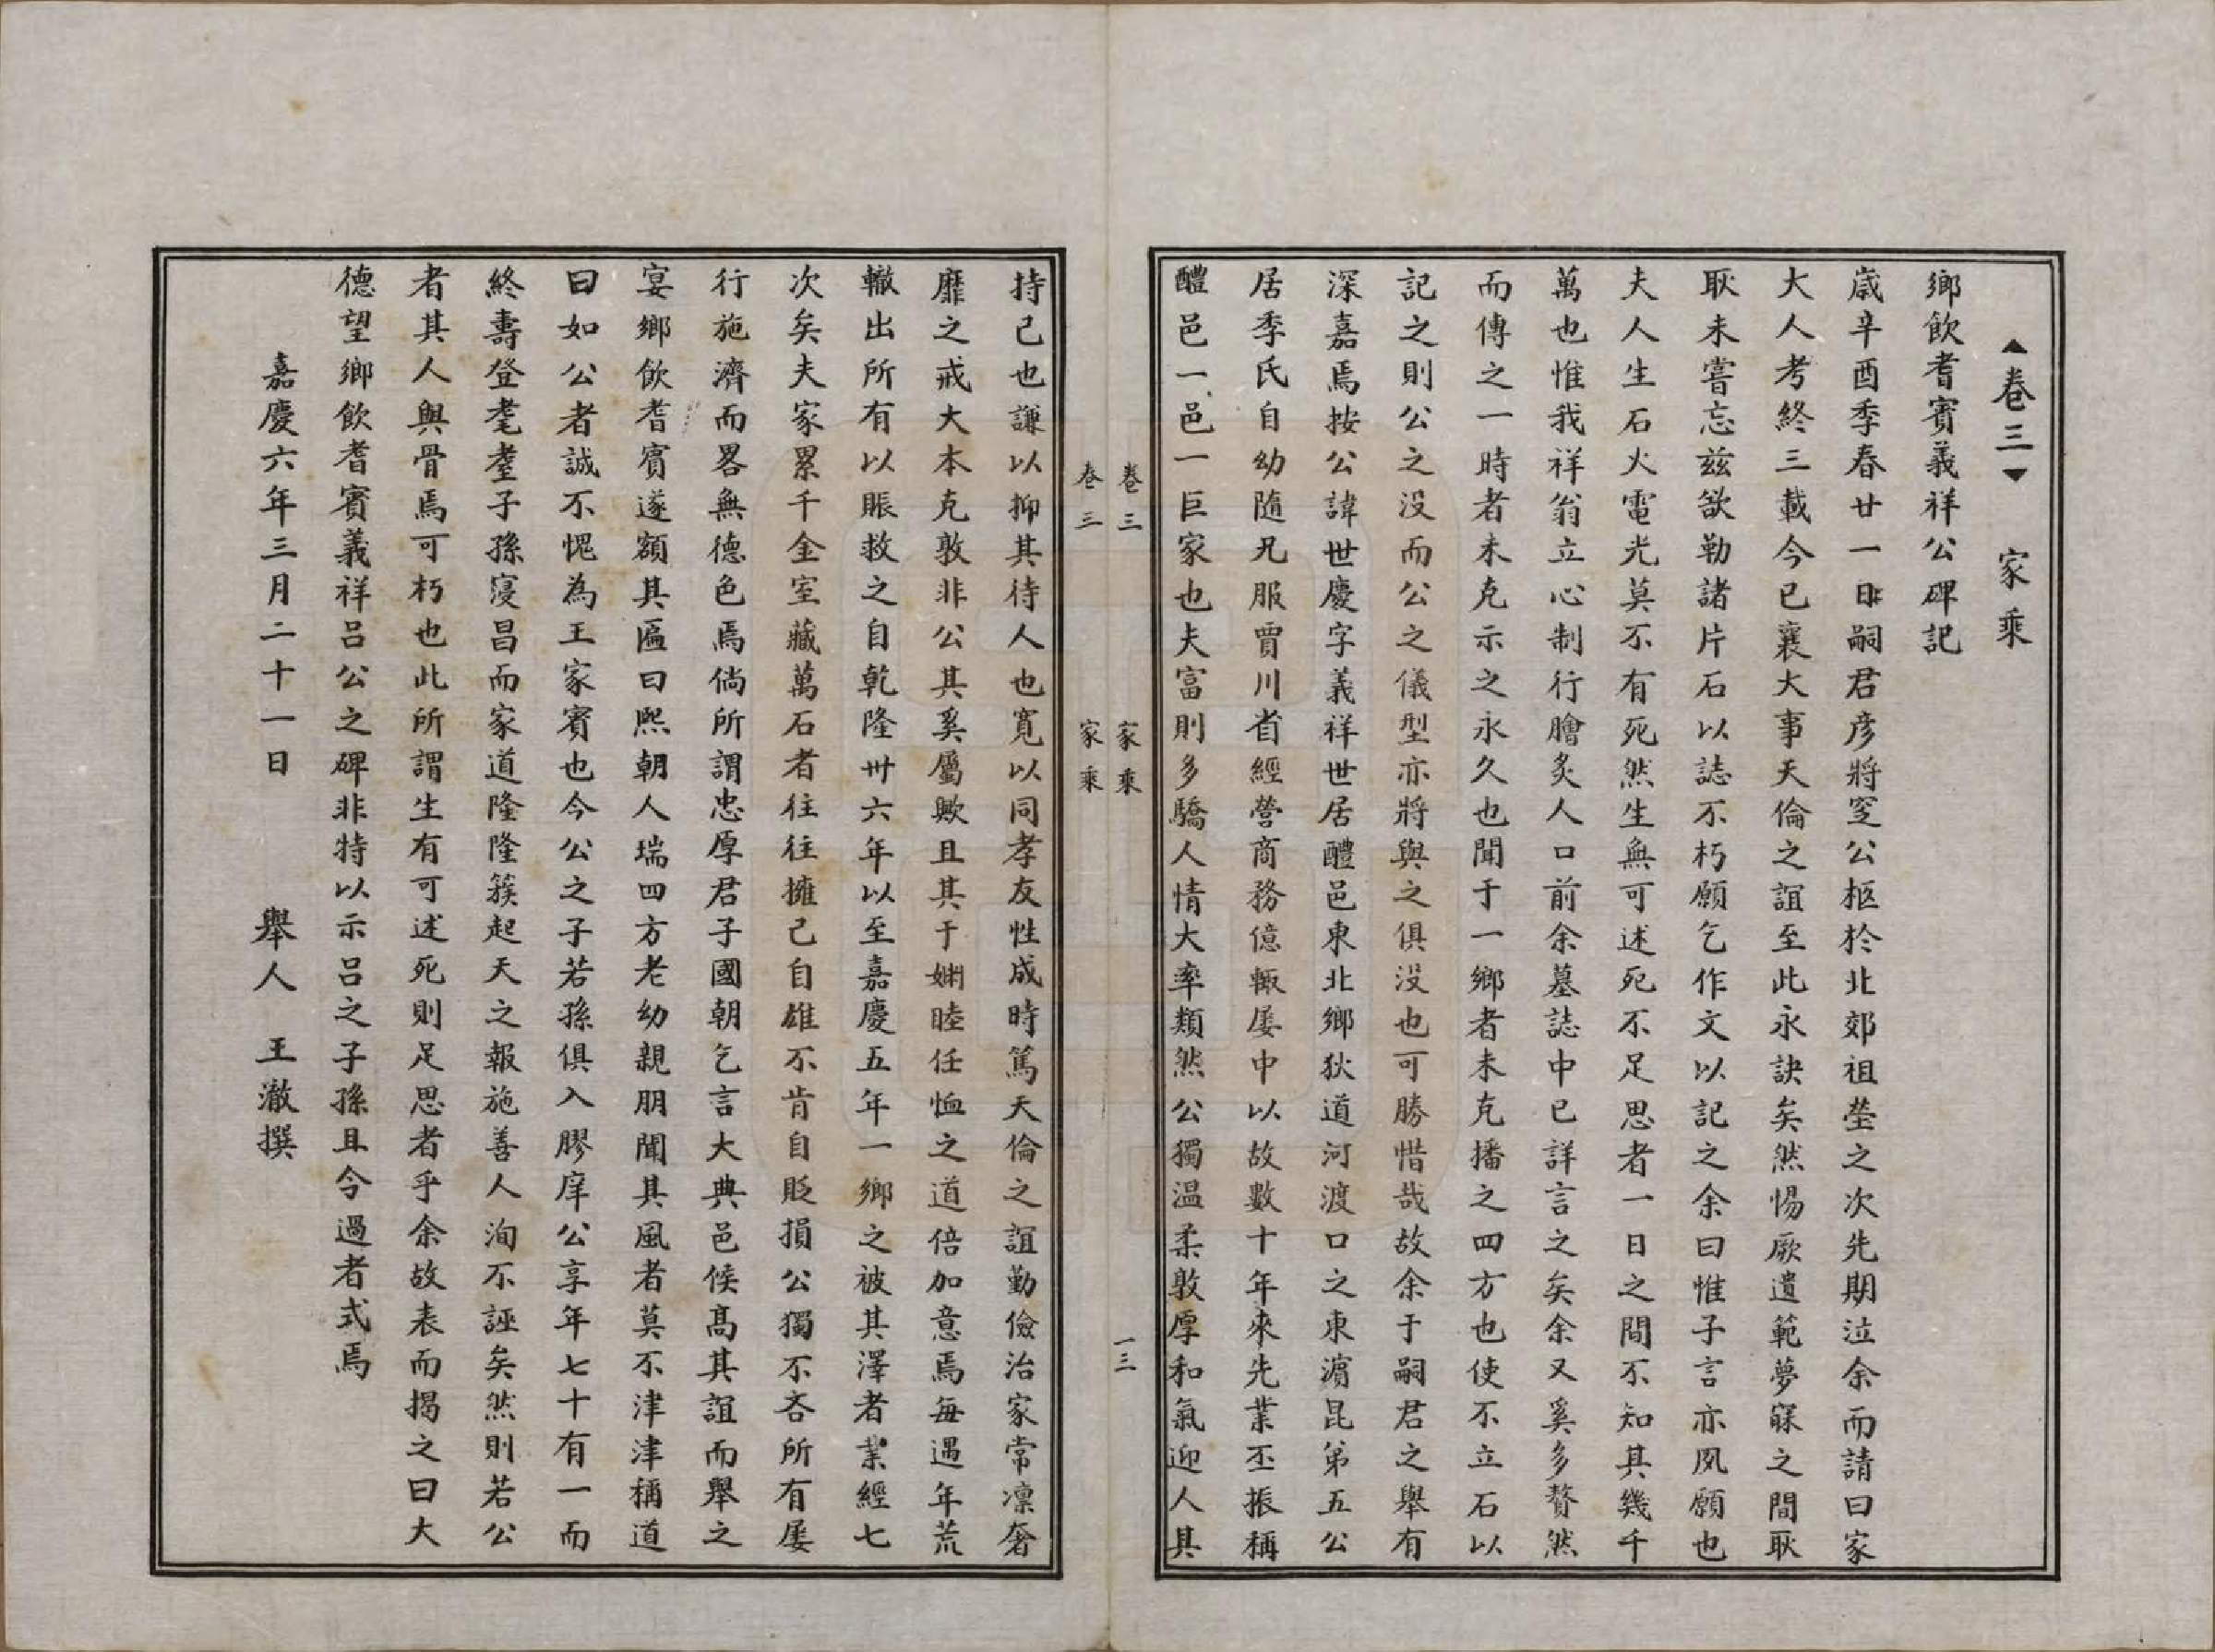 ▲卷三▼　家乘
鄉飲耆賓義祥公碑記
歲辛酉季春廿一日嗣君彥將窆公柩於北郊祖塋之次先期泣余而請曰家
大人考終三載今已襄大事天倫之誼至此永訣矣然惕厥遺範夢寐之間耿
耿未嘗忘玆欲勒諸片石以誌不朽願乞作文以記之余曰惟子言亦夙願也
夫人生石火電光莫不有死然生無可述死不足思者一日之間不知其幾千
萬也惟我祥翁立心制行膾炙人口前余墓誌中已詳言之矣余又奚多贅然
而傳之一時者未克示之永久也聞于一鄉者未克播之四方也使不立石以
記之則公之没而公之儀型亦將與之俱没也可勝惜哉故余于嗣君之舉有
深嘉焉按公諱世慶字義祥世居醴邑東北鄉狄道河渡口之東濵昆第五公
居季氏自幼隨兄服賈川省經營商務億輒屢中以故數十年來先業丕振稱
醴邑一邑一巨家也夫富則多驕人情大率類然公獨溫柔敦厚和氣迎人其
卷三　家乘　一三
卷三　家乘
持己也謙以抑其待人也寬以同孝友性成時篤天倫之誼勤儉治家常凛奢
靡之戒大本克敦非公其奚屬歟且其于婣睦任恤之道倍加意焉每遇年荒
轍出所有以賑救之自乾隆卅六年以至嘉慶五年一鄉之被其澤者業經七
次矣夫家累千金室藏萬石者往往擁己自雄不肯自貶損公獨不吝所有屡
行施濟而畧無德色焉倘所謂忠厚君子國朝乞言大典邑候髙其誼而舉之
宴鄉飲耆賓遂額其匾曰熙朝人瑞四方老幼親朋聞其風者莫不津津稱道
曰如公者誠不愧為王家賓也今公之子若孫俱入膠庠公享年七十有一而
終壽登耄耋子孫寖昌而家道隆隆簇起天之報施善人洵不誣矣然則若公
者其人與骨焉可朽也此所謂生有可述死則足思者乎余故表而揭之曰大
德望鄉飲耆賓義祥吕公之碑非特以示吕之子孫且令過者式焉
嘉慶六年三月二十一日　　舉人　王澈撰